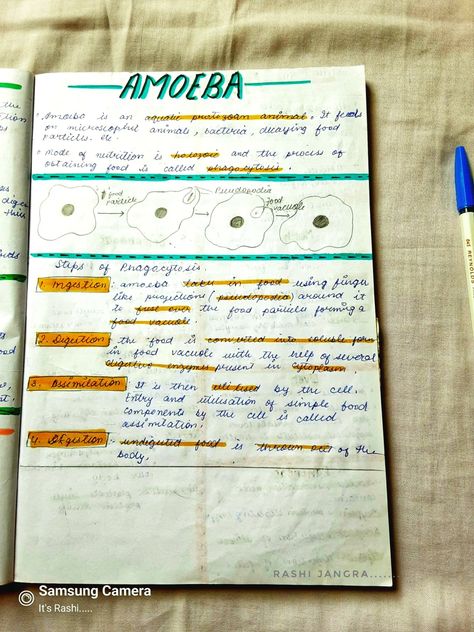 AMOEBA
• Amoeba is an aquatic protozoan animal. It feeds
on microscophul animals, bacteria, decaying food
particles. etc.
• Mode of nutrition is holozoic and the process of
obtaining food is called phagocytosis.
food particle
Pseudopodia
food vacuole
Steps of Phagocytosis.
1. Ingestion : amoeba takes in food using finger
like projections (pseudopodia) around it
to fuse over the food particle forming a
food vacuole.
2. Digestion : the food is converted into soluble form
in food vacuole with the help of several
digestive enzymes present in cytoplasm.
3. Assimilation : It is then utilised by the cell.
Entry and utilisation of simple food
components by the cell is called
assimilation.
4. Egestion : undigested food is thrown out of the
body.
RASHI JANGRA......
Samsung Camera
It's Rashi.....
REYNOLDS